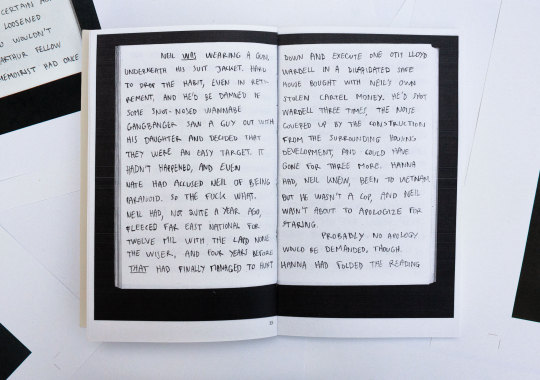 CERTAIN
LOOSENED
WOULDN'T
ARTHUR FELLOW
MEMOIRIST HAD ONCE
NEIL WAS WEARING A GUN,
UNDERNEATH HIS SUIT JACKET. HARD
TO DROP THE HABIT, EVEN IN RETI-
REMENT, AND HE'D BE DAMNED IF
SOME SNOT-NOSED WANNABE
GANGBANGER SAW A GUY OUT WITH
HIS DAUGHTER AND DECIDED THAT
THEY WERE AN EASY TARGET. IT
HADN'T HAPPENED, AND EVEN
NATE HAD ACCUSED NEIL OF BEING
PARANOID. SO THE FUCK WHAT.
NEIL HAD, NOT QUITE A YEAR AGO,
FLEECED FAR EAST NATIONAL FOR
TWELVE MIL WITH THE LAPD NONE
THE WISER, AND FOUR YEARS BEFORE
THAT HAD FINALLY MANAGED TO HUNT
DOWN AND EXECUTE ONE OTIT LLOYD
WARDELL IN A DILAPIDATED SAFE
HOUSE BOUGHT WITH NEIL'S OWN
STOLEN CARTEL MONEY. HE'D SHOT
WARDELL THREE TIMES, THE NOISE
COVERED UP BY THE CONSTRUCTION
FROM THE SURROUNDING HOUSING
DEVELOPMENT, AND COULD HAVE
GONE FOR THREE MORE. HANNA
HAD, NEIL KNEW, BEEN TO VIETNAM.
BUT HE WASN'T A COP, AND NEIL
WASN'T ABOUT TO APOLOGIZE FOR
STARING.
PROBABLY NO APOLOGY
WOULD BE DEMANDED, THOUGH.
HANNA HAD FOLDED THE READING